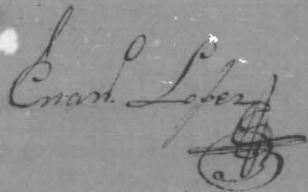 Eman.l Lopez